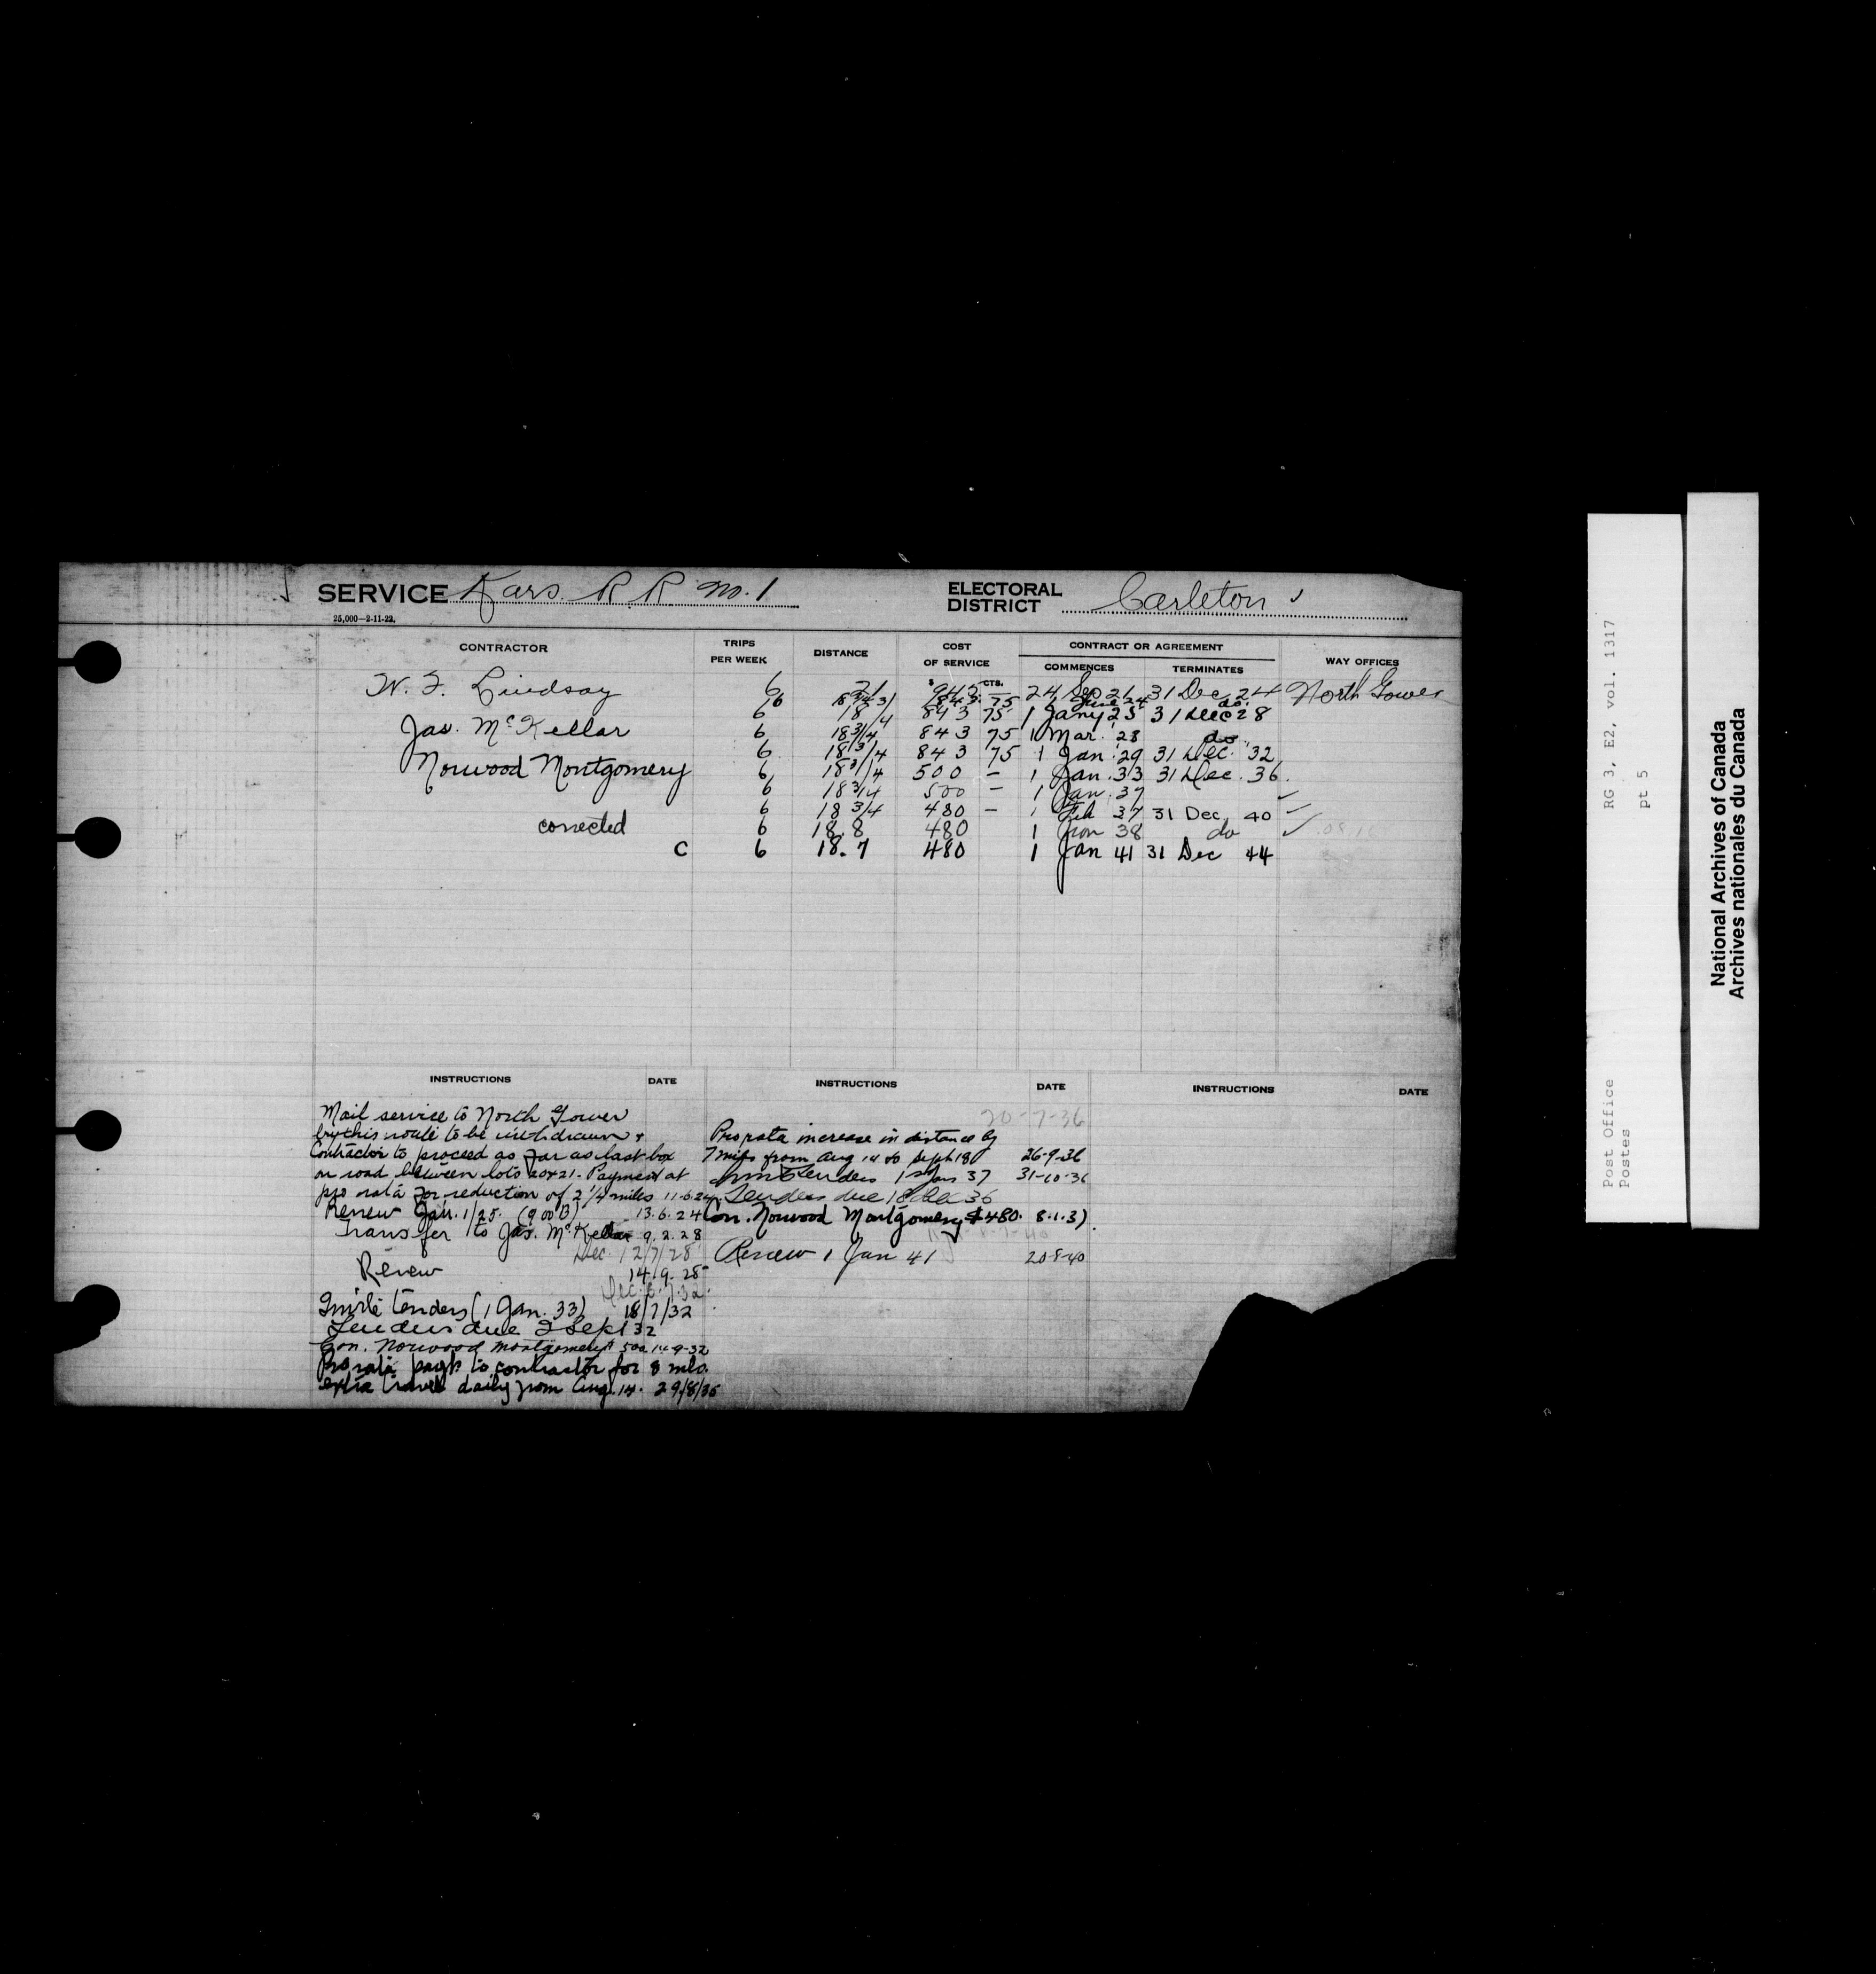 SERVICE Kars R R no. 1 ELECTORAL DISTRICT Carleton
25,000—2-11-22.
CONTRACTOR TRIPS PER WEEK DISTANCE COST OF SERVICE CONTRACT OR AGREEMENT WAY OFFICES
COMMENCES TERMINATES
$ CTS.
W. F. Lindsay 6 21 942 — 24 Sep 21 31 Dec 24 North Gower
6 18 3/4 843 75 June 24 do.
6 18 3/4 843 75 1 Jany 25 31 Dec 28
Jas. McKellar 6 18 3/4 843 75 1 Mar. 28 do
6 18 3/4 843 75 1 Jan. 29 31 Dec. 32
Norwood Montgomery 6 18 3/4 500 — 1 Jan. 33 31 Dec. 36.
6 18 3/4 500 — 1 Jan. 37
6 18 3/4 480 — 1 Feb 37 31 Dec, 40
corrected 6 18.8 480 1 Jan 38 do
C 6 18.7 480 1 Jan 41 31 Dec 44
INSTRUCTIONS DATE INSTRUCTIONS DATE INSTRUCTIONS DATE
Mail service to North Gower
by this route to be withdrawn &
Contractor to proceed as far as last box
on road between lots 20 & 21. Payment at
pro rata for reduction of 2 1/4 miles 11-6-24
Renew Jan. 1/25. 13.6.24
Transfer to Jas. McKellar 9.2.28
Dec. 12/7/28
Renew 14.9.28
Dec. 6.7.32.
Invite tenders (1 Jan. 33) 18/7/32
Tenders due 2 Sept 32
Con. Norwood Montgomery $500 14-9-32
Pro rata payt to contractor for 8 mls.
extra travel daily from Aug. 14. 29/8/36
20-7-36
Pro rata increase in distance by
7 miles from Aug 14 to Sept 18 26-9-36
Inv. Tenders 1st Jan 37 31-10-36
Tenders due 18 Dec 36
Con. Norwood Montgomery $480. 8.1.37.
Renew 1 Jan 41 20-8-40
Post Office
Postes
RG 3, E2, vol. 1317
pt 5
National Archives of Canada
Archives nationales du Canada